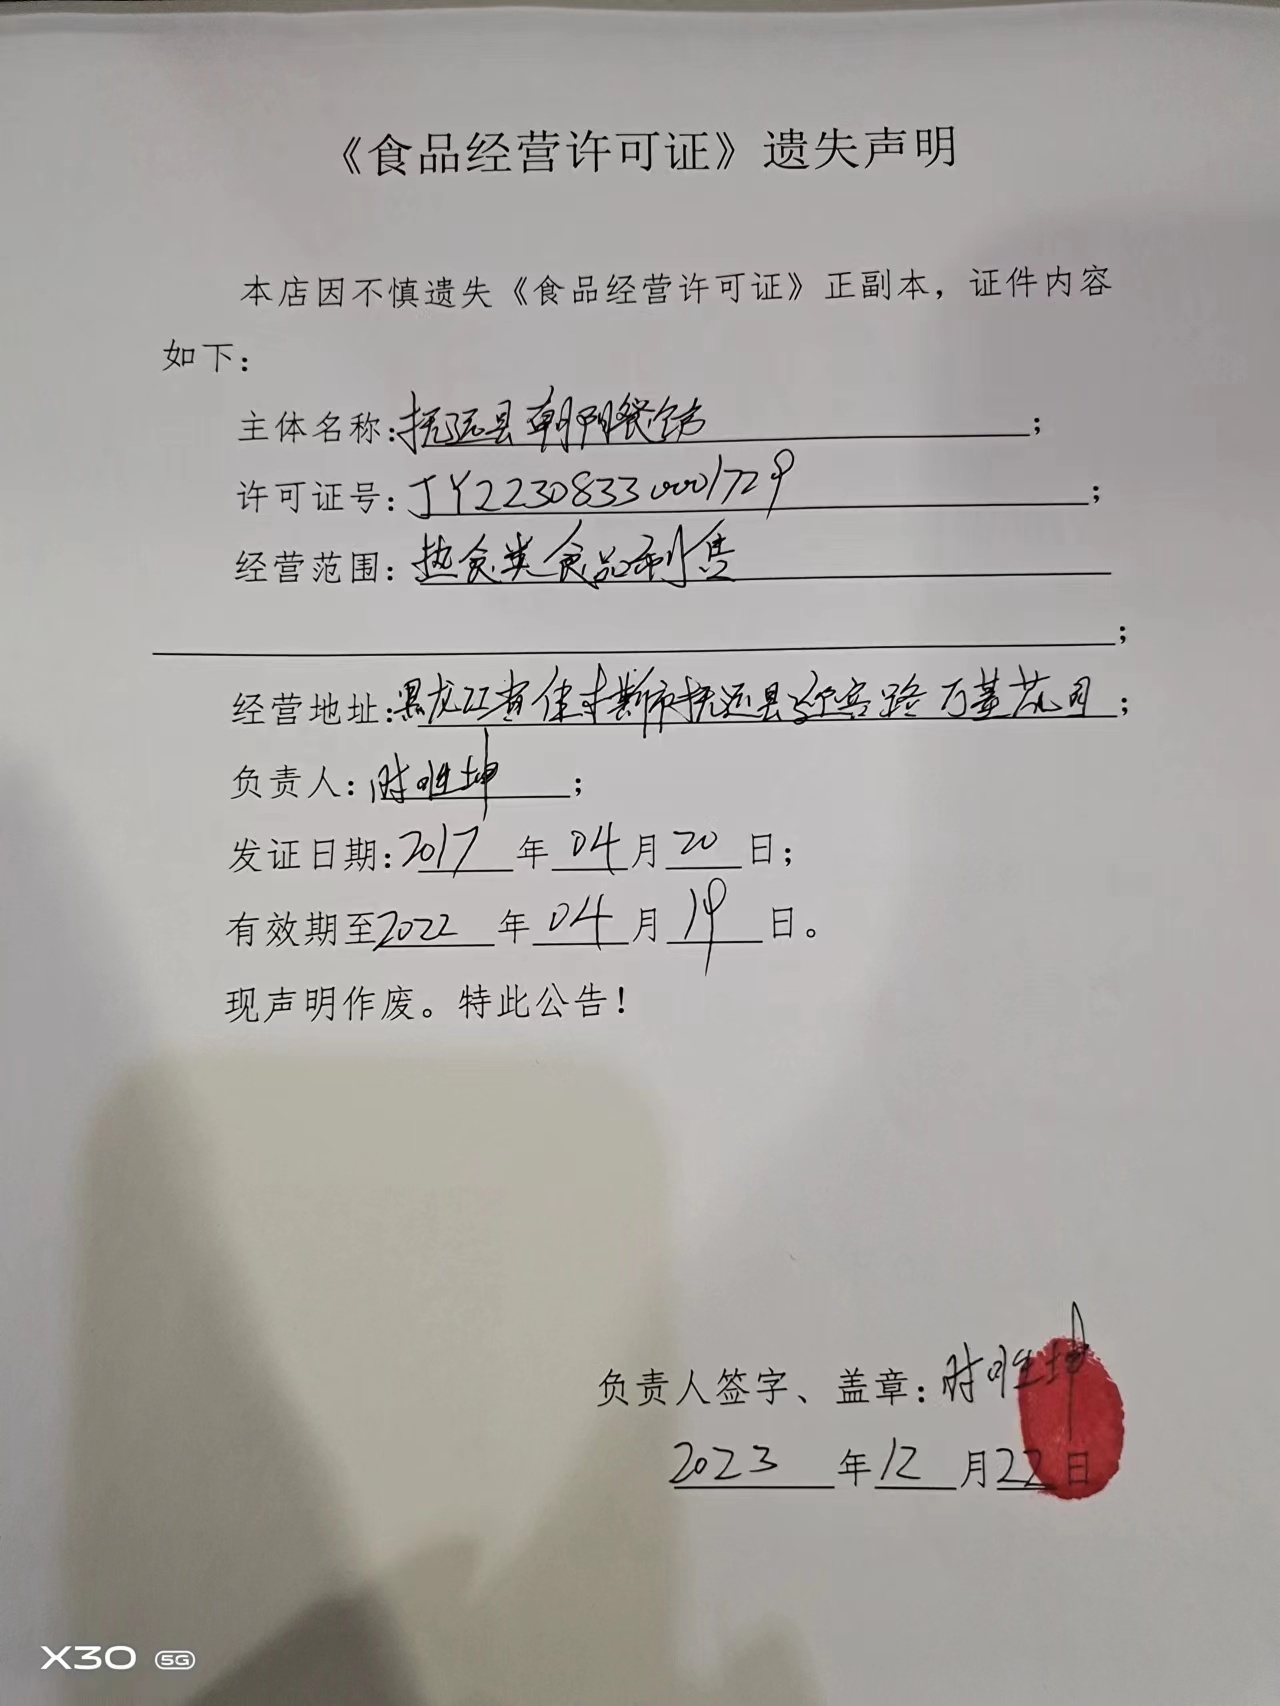 《食品经营许可证》遗失声明
本店因不慎遗失《食品经营许可证》正副本，证件内容
如下：
主体名称：抚远县朝阳餐馆；
许可证号：JY22308330001729；
经营范围：热食类食品制售
；
经营地址：黑龙江省佳木斯市抚远县迎宾路万董花园；
负责人：时胜坤；
发证日期：2017年04月20日；
有效期至2022年04月19日。
现声明作废。特此公告！
负责人签字、盖章：时胜坤
2023年12月22日
X30 5G